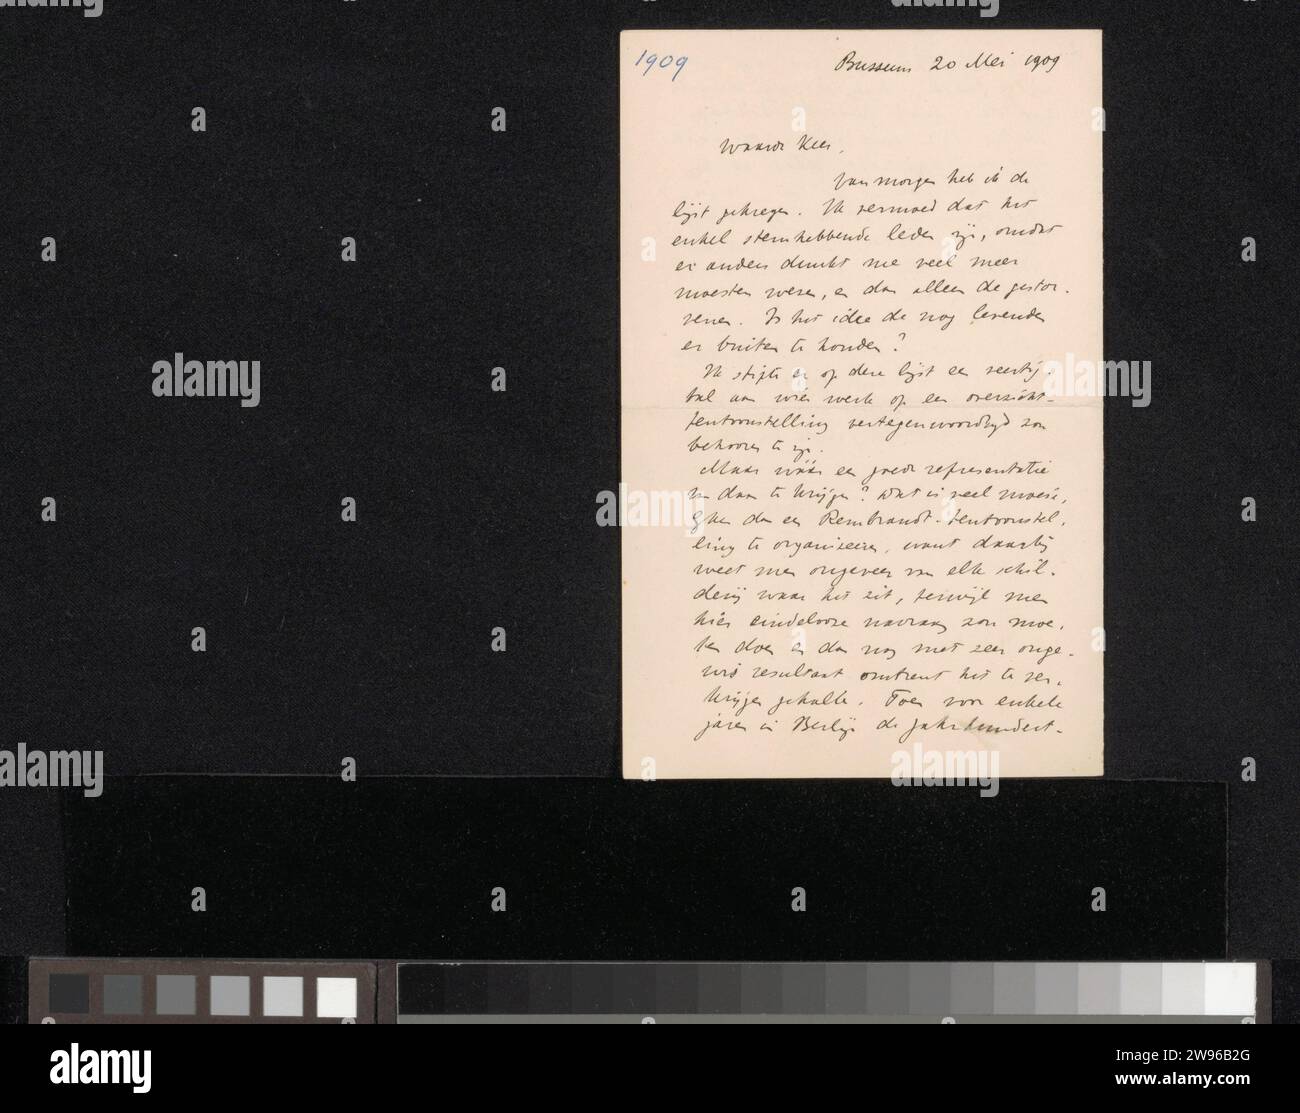 1909
Bussum 20 Mei 1909
Waarde Kees,
Van morgen heb ik de
lijst gekregen. Ik vermoed dat het
enkel stemhebbende leden zijn, omdat
er anders dunkt me veel meer
moesten wezen, en dan alleen de gestor-
venen. Is het idee de nog levenden
er buiten te houden?
Ik stipte er op deze lijst een veertig-
tal aan wier werk op een overzicht-
tentoonstelling vertegenwoordigd zou
behooren te zijn.
Maar wáár een goede representatie
van daan te krijgen? Dat is veel moeie-
lijker dan een Rembrandt-tentoonstel-
ling te organiseeren, want daarbij
weet men ongeveer van elke schil-
derij waar het zit, terwijl men
hier eindelooze navraag zou moe-
ten doen en dan nog met zeer onge-
wis resultaat omtrent het te ver-
krijgen gehalte. Toen voor enkele
jaren in Berlijn de Jahrhundert-
alamy
alamy
alamy
alamy
Image ID: 2W96B2G
www.alamy.com